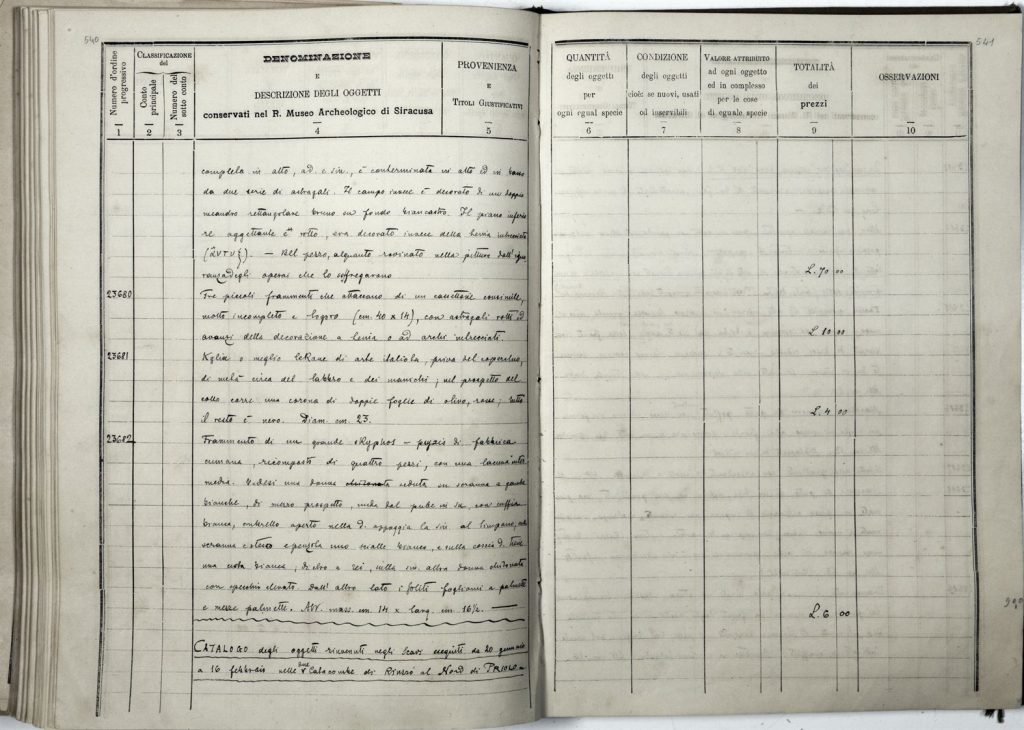 540
Numero d'ordine progressivo
CLASSIFICAZIONE
del
Conto principale
Numero del sotto conto
DENOMINAZIONE
E
DESCRIZIONE DEGLI OGGETTI
conservati nel R. Museo Archeologico di Siracusa
PROVENIENZA
E
TITOLI GIUSTIFICATIVI
1 2 3 4 5
completa in alto, ad. e sin., è conterminata in alto ed in basso
da due serie di astragali. Il campo invece è decorato di un doppio
meandro rettangolare bruno su fondo biancastro. Il piano inferio
re aggettante è rotto, era decorato invece della henia intrecciata
— Bel pezzo, alquanto rovinato nella pittura dall'igno
ranza degli operai che lo soffregarono
23680
Tre piccoli frammenti che attaccano di un cassettone consimile,
molto incompleto e logoro (cm. 40 x 14), con astragali rotti ed
avanzi della decorazione a henia o ad archi intrecciati.
23681
Kylix o meglio lekane di arte italiota, priva del coperchio,
di metà circa del labbro e dei manichi; nel prospetto del
collo corre una corona di doppie foglie di olivo, rosse; tutto
il resto è nero. Diam. cm. 23.
23682
Frammento di un grande skyphos – pyxis di fabbrica
cumana, ricomposto di quattro pezzi, con una lacuna inter
media. Vedesi una donna seduta su
bianche, di mezzo prospetto, nuda dal pube in su, con cuffia
bianca, ombrello aperto nella d. appoggia la sin. al timpano,
e uno scialle bianco, e sulla coscia d. tiene
una bianca; dietro a lei, sulla sin. altra donna
con specchio elevato. Dall'altro lato i soliti fogliami a palmette
e mezze palmette. Alt. mass. cm 14 x larg. cm 16½.
CATALOGO degli oggetti rinvenuti negli Scavi eseguiti da 20 gennaio
a 16 febbraio nelle due Catacombe di Riuzzo al Nord di PRIOLO
541
QUANTITÀ
degli oggetti
per
ogni egual specie
CONDIZIONE
degli oggetti
cioè: se nuovi, usati
od inservibili
VALORE ATTRIBUITO
ad ogni oggetto
ed in complesso
per le cose
di eguale specie
TOTALITÀ
dei
prezzi
OSSERVAZIONI
6 7 8 9 10
L. 70 00
L. 10 00
L. 4 00
L. 6 00